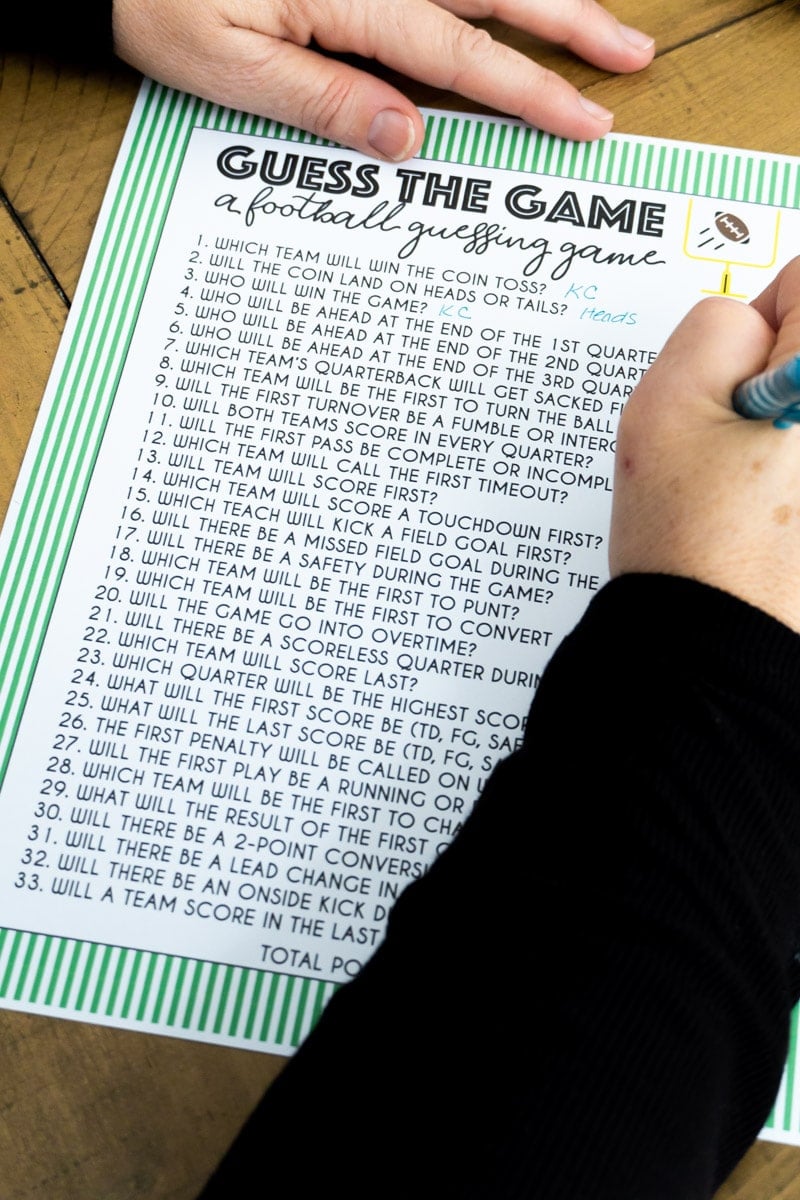 GUESS THE GAME
a football guessing game
1. WHICH TEAM WILL WIN THE COIN TOSS? KC
2. WILL THE COIN LAND ON HEADS OR TAILS? Heads
3. WHO WILL WIN THE GAME? KC
4. WHO WILL BE AHEAD AT THE END OF THE 1ST QUARTE
5. WHO WILL BE AHEAD AT THE END OF THE 2ND QUART
6. WHO WILL BE AHEAD AT THE END OF THE 3RD QUAR
7. WHICH TEAM'S QUARTERBACK WILL GET SACKED FI
8. WHICH TEAM WILL BE THE FIRST TO TURN THE BALL
9. WILL THE FIRST TURNOVER BE A FUMBLE OR INTERC
10. WILL BOTH TEAMS SCORE IN EVERY QUARTER?
11. WILL THE FIRST PASS BE COMPLETE OR INCOMPL
12. WHICH TEAM WILL CALL THE FIRST TIMEOUT?
13. WILL TEAM WILL SCORE FIRST?
14. WHICH TEAM WILL SCORE A TOUCHDOWN FIRST?
15. WHICH TEACH WILL KICK A FIELD GOAL FIRST?
16. WILL THERE BE A MISSED FIELD GOAL DURING THE
17. WILL THERE BE A SAFETY DURING THE GAME?
18. WHICH TEAM WILL BE THE FIRST TO PUNT?
19. WHICH TEAM WILL BE THE FIRST TO CONVERT
20. WILL THE GAME GO INTO OVERTIME?
21. WILL THERE BE A SCORELESS QUARTER DURIN
22. WHICH TEAM WILL SCORE LAST?
23. WHICH QUARTER WILL BE THE HIGHEST SCOR
24. WHAT WILL THE FIRST SCORE BE (TD, FG, SAF
25. WHAT WILL THE LAST SCORE BE (TD, FG, SA
26. THE FIRST PENALTY WILL BE CALLED ON
27. WILL THE FIRST PLAY BE A RUNNING OR
28. WHICH TEAM WILL BE THE FIRST TO CHA
29. WHAT WILL THE RESULT OF THE FIRST
30. WILL THERE BE A 2-POINT CONVERSI
31. WILL THERE BE A LEAD CHANGE IN
32. WILL THERE BE AN ONSIDE KICK D
33. WILL A TEAM SCORE IN THE LAST
TOTAL PO